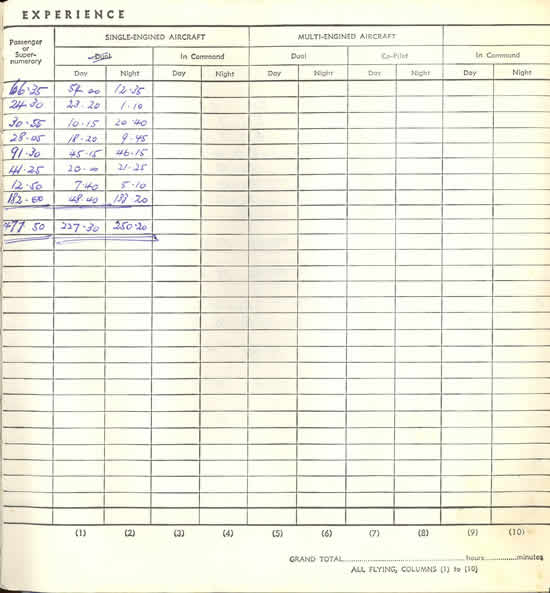 EXPERIENCE
Passenger or Super-numerary
SINGLE-ENGINED AIRCRAFT MULTI-ENGINED AIRCRAFT
Dual In Command Dual Co-Pilot In Command
Day Night Day Night Day Night Day Night Day Night
66·35 54·00 12·35
24·30 23·20 1·10
30·55 10·15 20·40
28·05 18·20 9·45
91·30 45·15 46·15
41·25 20·00 21·25
12·50 7·40 5·10
182·00 48·40 133·20
477·50 227·30 250·20
(1) (2) (3) (4) (5) (6) (7) (8) (9) (10)
GRAND TOTAL hours minutes
ALL FLYING, COLUMNS (1) to (10)